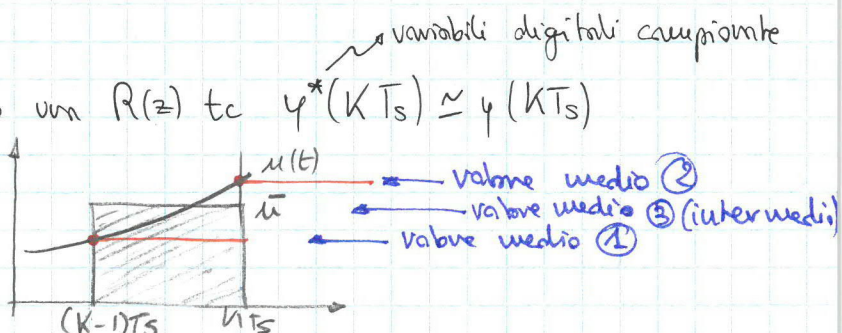 variabili digitali campionate
un R(z) tc y*(KTs) ≃ y(KTs)
u(t)
valore medio ②
ū
valore medio ③ (intermedio)
valore medio ①
(K-1)Ts
KTs